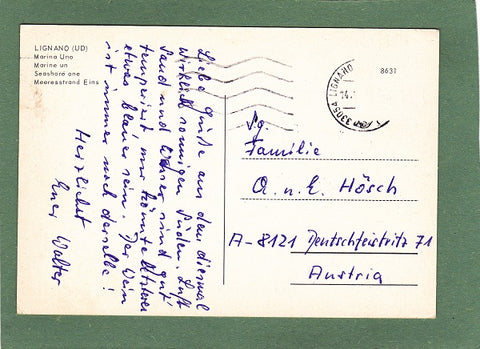 LIGNANO (UD)
Marina Uno
Marine un
Seashore one
Meeresstrand Eins
Liebe Grüße aus dem diesmal
wirklich sonnigen Süden. Luft
Sand und Wasser sind gut
temperiert nur könnte letzteres
etwas blauer sein. Der Wein
ist immer noch derselbe!
Herzlichst
Euer Walter
33054 LIGNANO
14.
8631
Familie
A. u. E. Hösch
A-8121 Deutschfeistritz 71
Austria